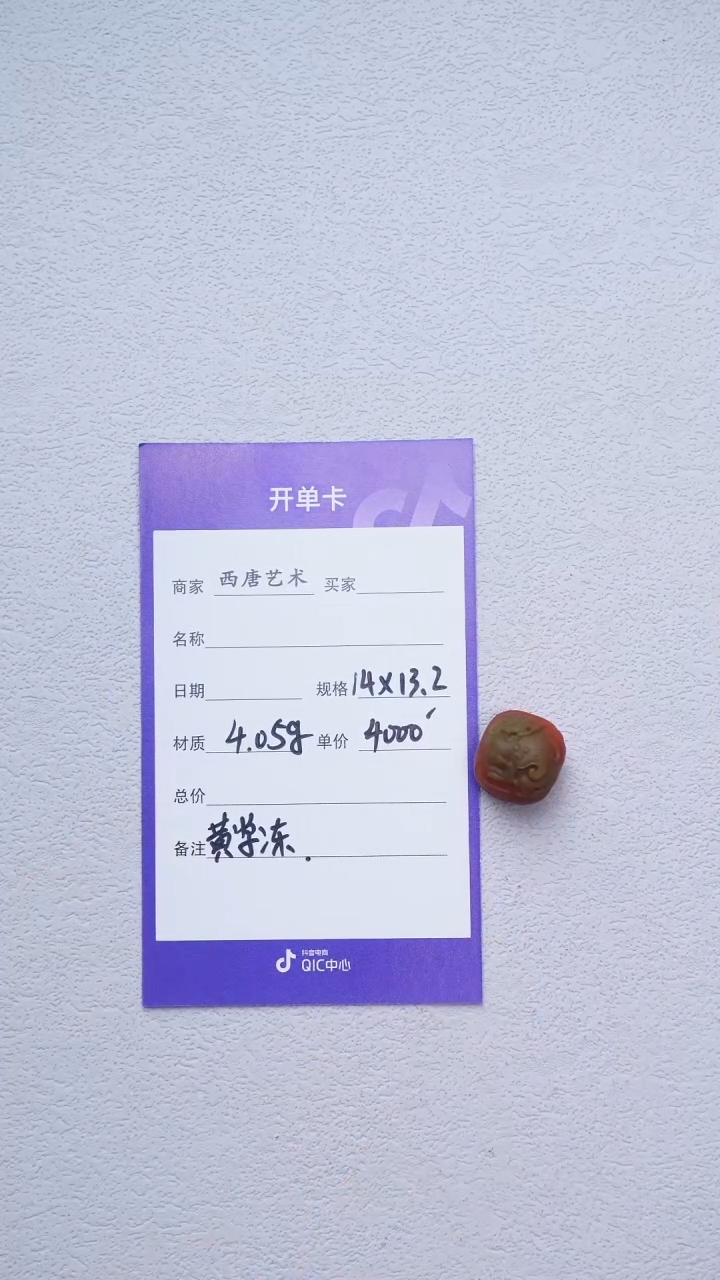 开单卡
商家 西唐艺术 买家
名称
日期 规格 14×13.2
材质 4.05g 单价 4000
总价
备注 黄学冻.
抖音电商
QIC中心